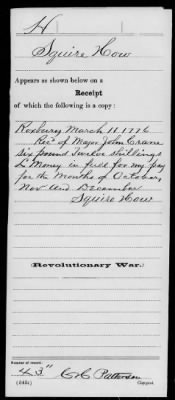 H
Squire How
Appears as shown below on a
Receipt
of which the following is a copy:
Roxbury March 11 1776
Recd of Major John Crane
six pound Twelve shillings
L Money in full for my pay
for the Months of October,
Nov and December
Squire How
(Revolutionary War.)
Number of record:
43
(545c)
CC Patterson
Copyist.